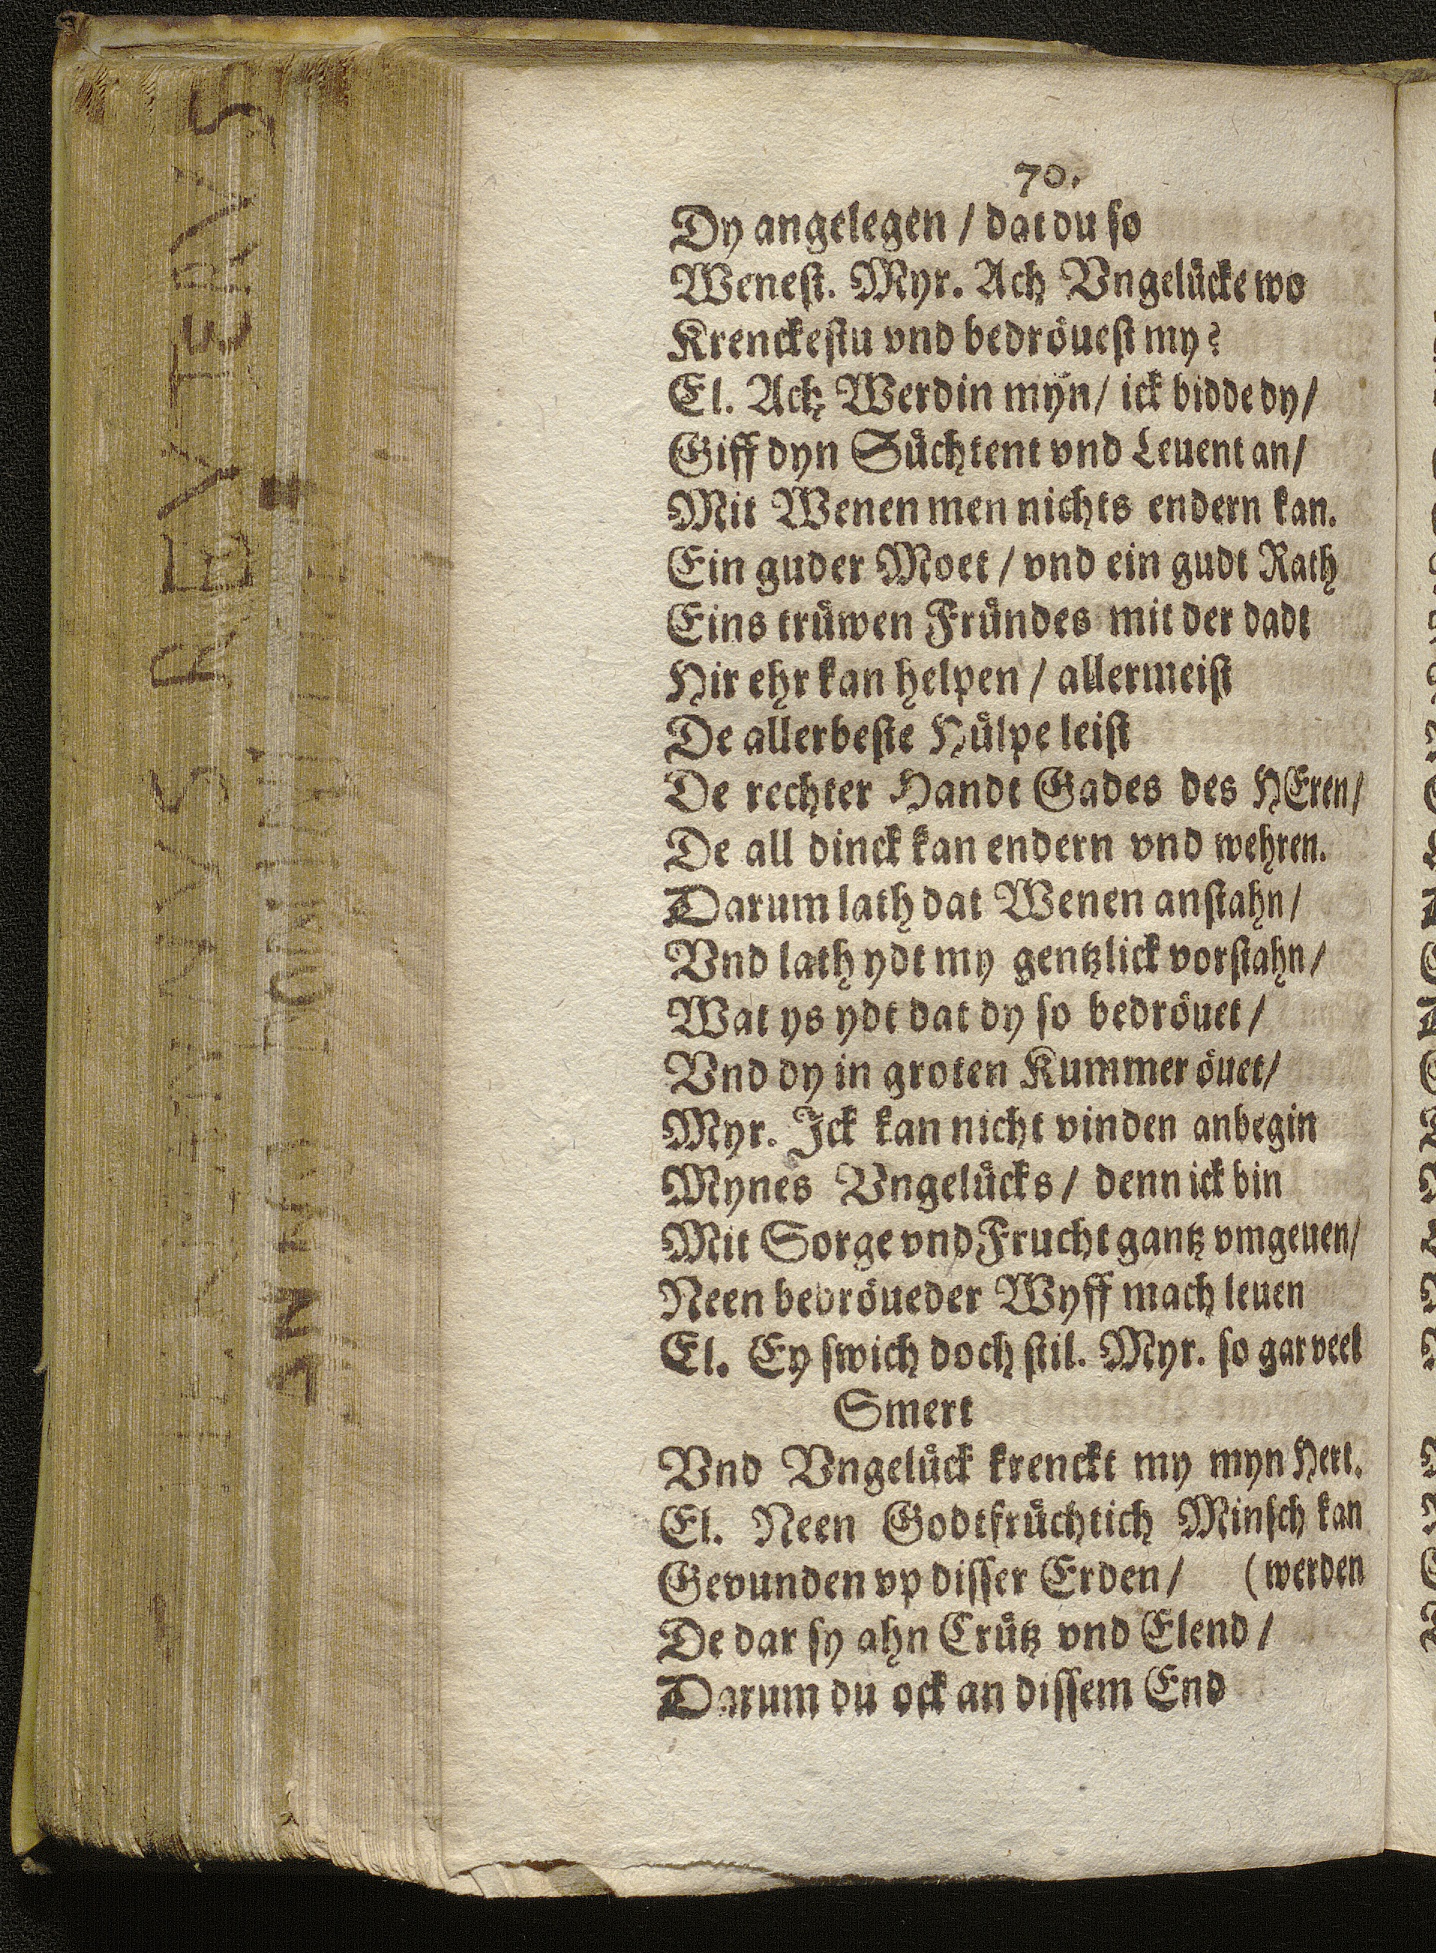 70.
Dy angelegen / dat du so
Wenest. Myr. Ach Vngelücke wo
Krenckestu vnd bedröuest my?
El. Ach Werdin myn / ick bidde dy /
Giff dyn Süchtent vnd Leuent an /
Mit Wenen men nichts endern kan.
Ein guder Moet / vnd ein gudt Rath
Eins trüwen Fründes mit der dadt
Hir ehr kan helpen / allermeist
De allerbeste Hülpe leist
De rechter Handt Gades des HEren /
De all dinck kan endern vnd wehren.
Darum lath dat Wenen anstahn /
Vnd lath ydt my gentzlick vorstahn /
Wat ys ydt dat dy so bedröuet /
Vnd dy in groten Kummer öuet /
Myr. Ick kan nicht vinden anbegin
Mynes Vngelücks / denn ick bin
Mit Sorge vnd Frucht gantz vmgeuen /
Neen bedröueder Wyff mach leuen
El. Ey swich doch stil. Myr. so gar veel
Smert
Vnd Vngelück krenckt my myn Hert.
El. Neen Godtfrüchtich Minsch kan
Gevunden vp disser Erden / (werden
De dar sy ahn Crütz vnd Elend /
Darum du ock an dissem End
REVTERVS
ANNO DOMINI